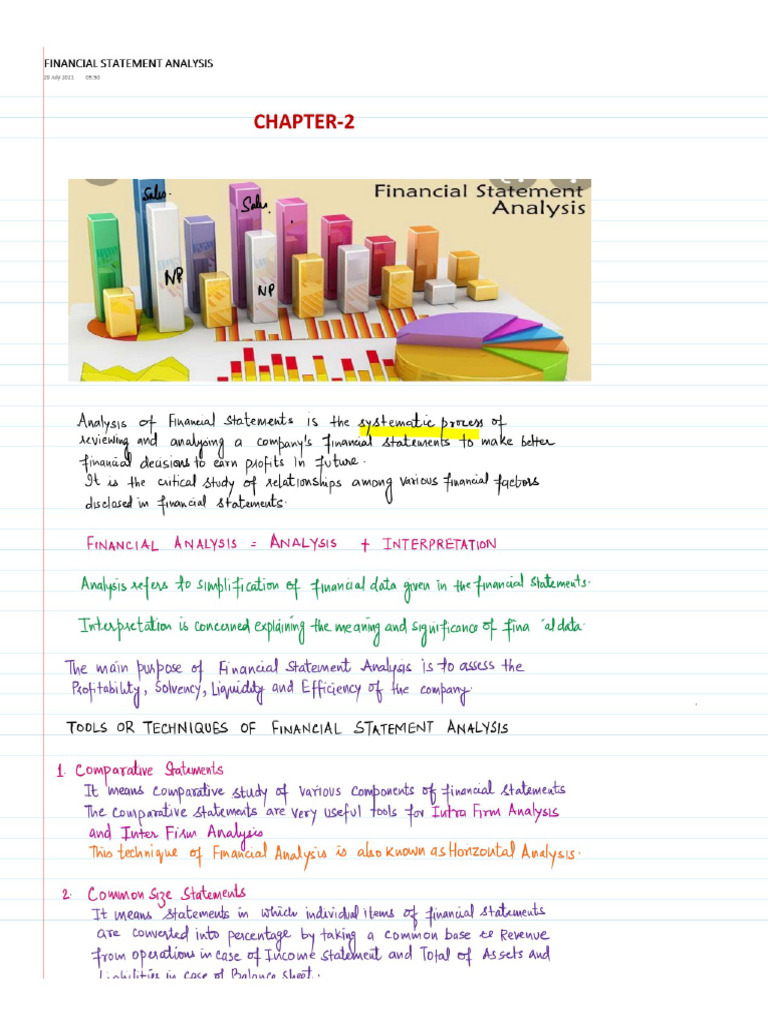 FINANCIAL STATEMENT ANALYSIS
CHAPTER-2
Financial Statement
Analysis
Sales.
Sales.
NP
NP
Analysis of Financial Statements is the systematic process of
reviewing and analysing a company's financial statements to make better
financial decisions to earn profits in future.
It is the critical study of relationships among various financial factors
disclosed in financial statements.
FINANCIAL ANALYSIS = ANALYSIS + INTERPRETATION
Analysis refers to simplification of financial data given in the financial statements.
Interpretation is concerned explaining the meaning and significance of fina al data
The main purpose of Financial Statement Analysis is to assess the
Profitability, Solvency, Liquidity and Efficiency of the company.
TOOLS OR TECHNIQUES OF FINANCIAL STATEMENT ANALYSIS
1. Comparative Statements
It means comparative study of various components of financial statements
The comparative statements are very useful tools for Intra Firm Analysis
and Inter Firm Analysis
This technique of Financial Analysis is also known as Horizontal Analysis.
2. Common Size Statements
It means statements in which individual items of financial statements
are converted into percentage by taking a common base ie Revenue
from operations in case of Income Statement and Total of Assets and
Liabilities in case of Balance Sheet.